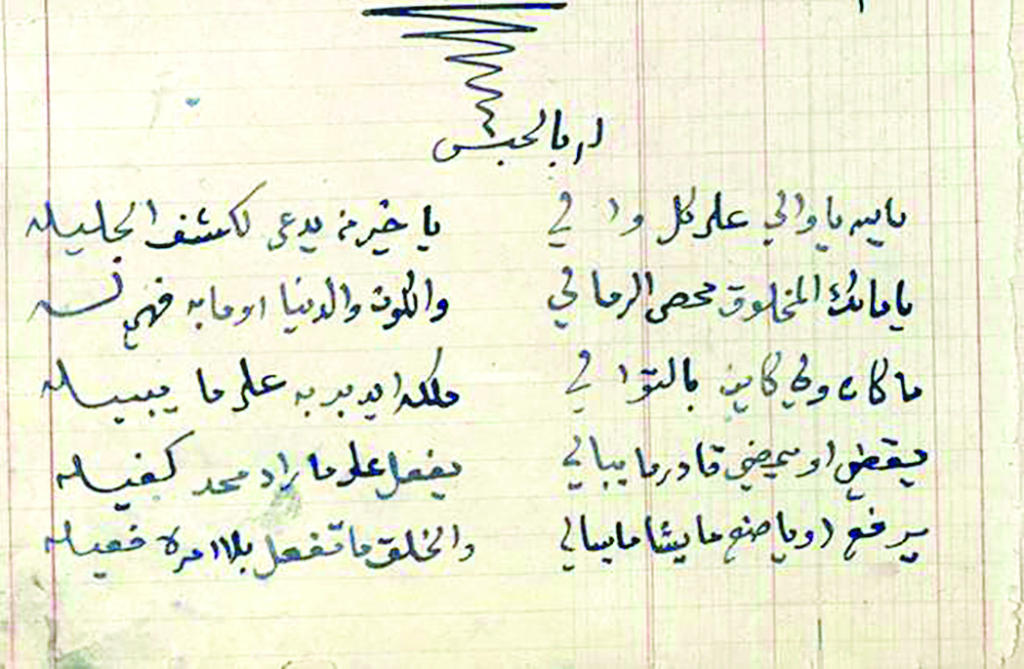 لـ بالحبش
يا الله يا والي على كل والي يا خير من يدعى لكشف الجليله
يا مالك المخلوق محصي الرمالي والكون والدنيا اوما به فهي له
ما كان ولي كاين بالتوالي ملكه ايدبر به على ما يبي له
يقضي او يمضي قادر ما يبالي يفعل على ما راد محد كفيله
يرفع او يا ضع ما يشا ما يبالي والخلق ما تفعل بلا امره فعيله